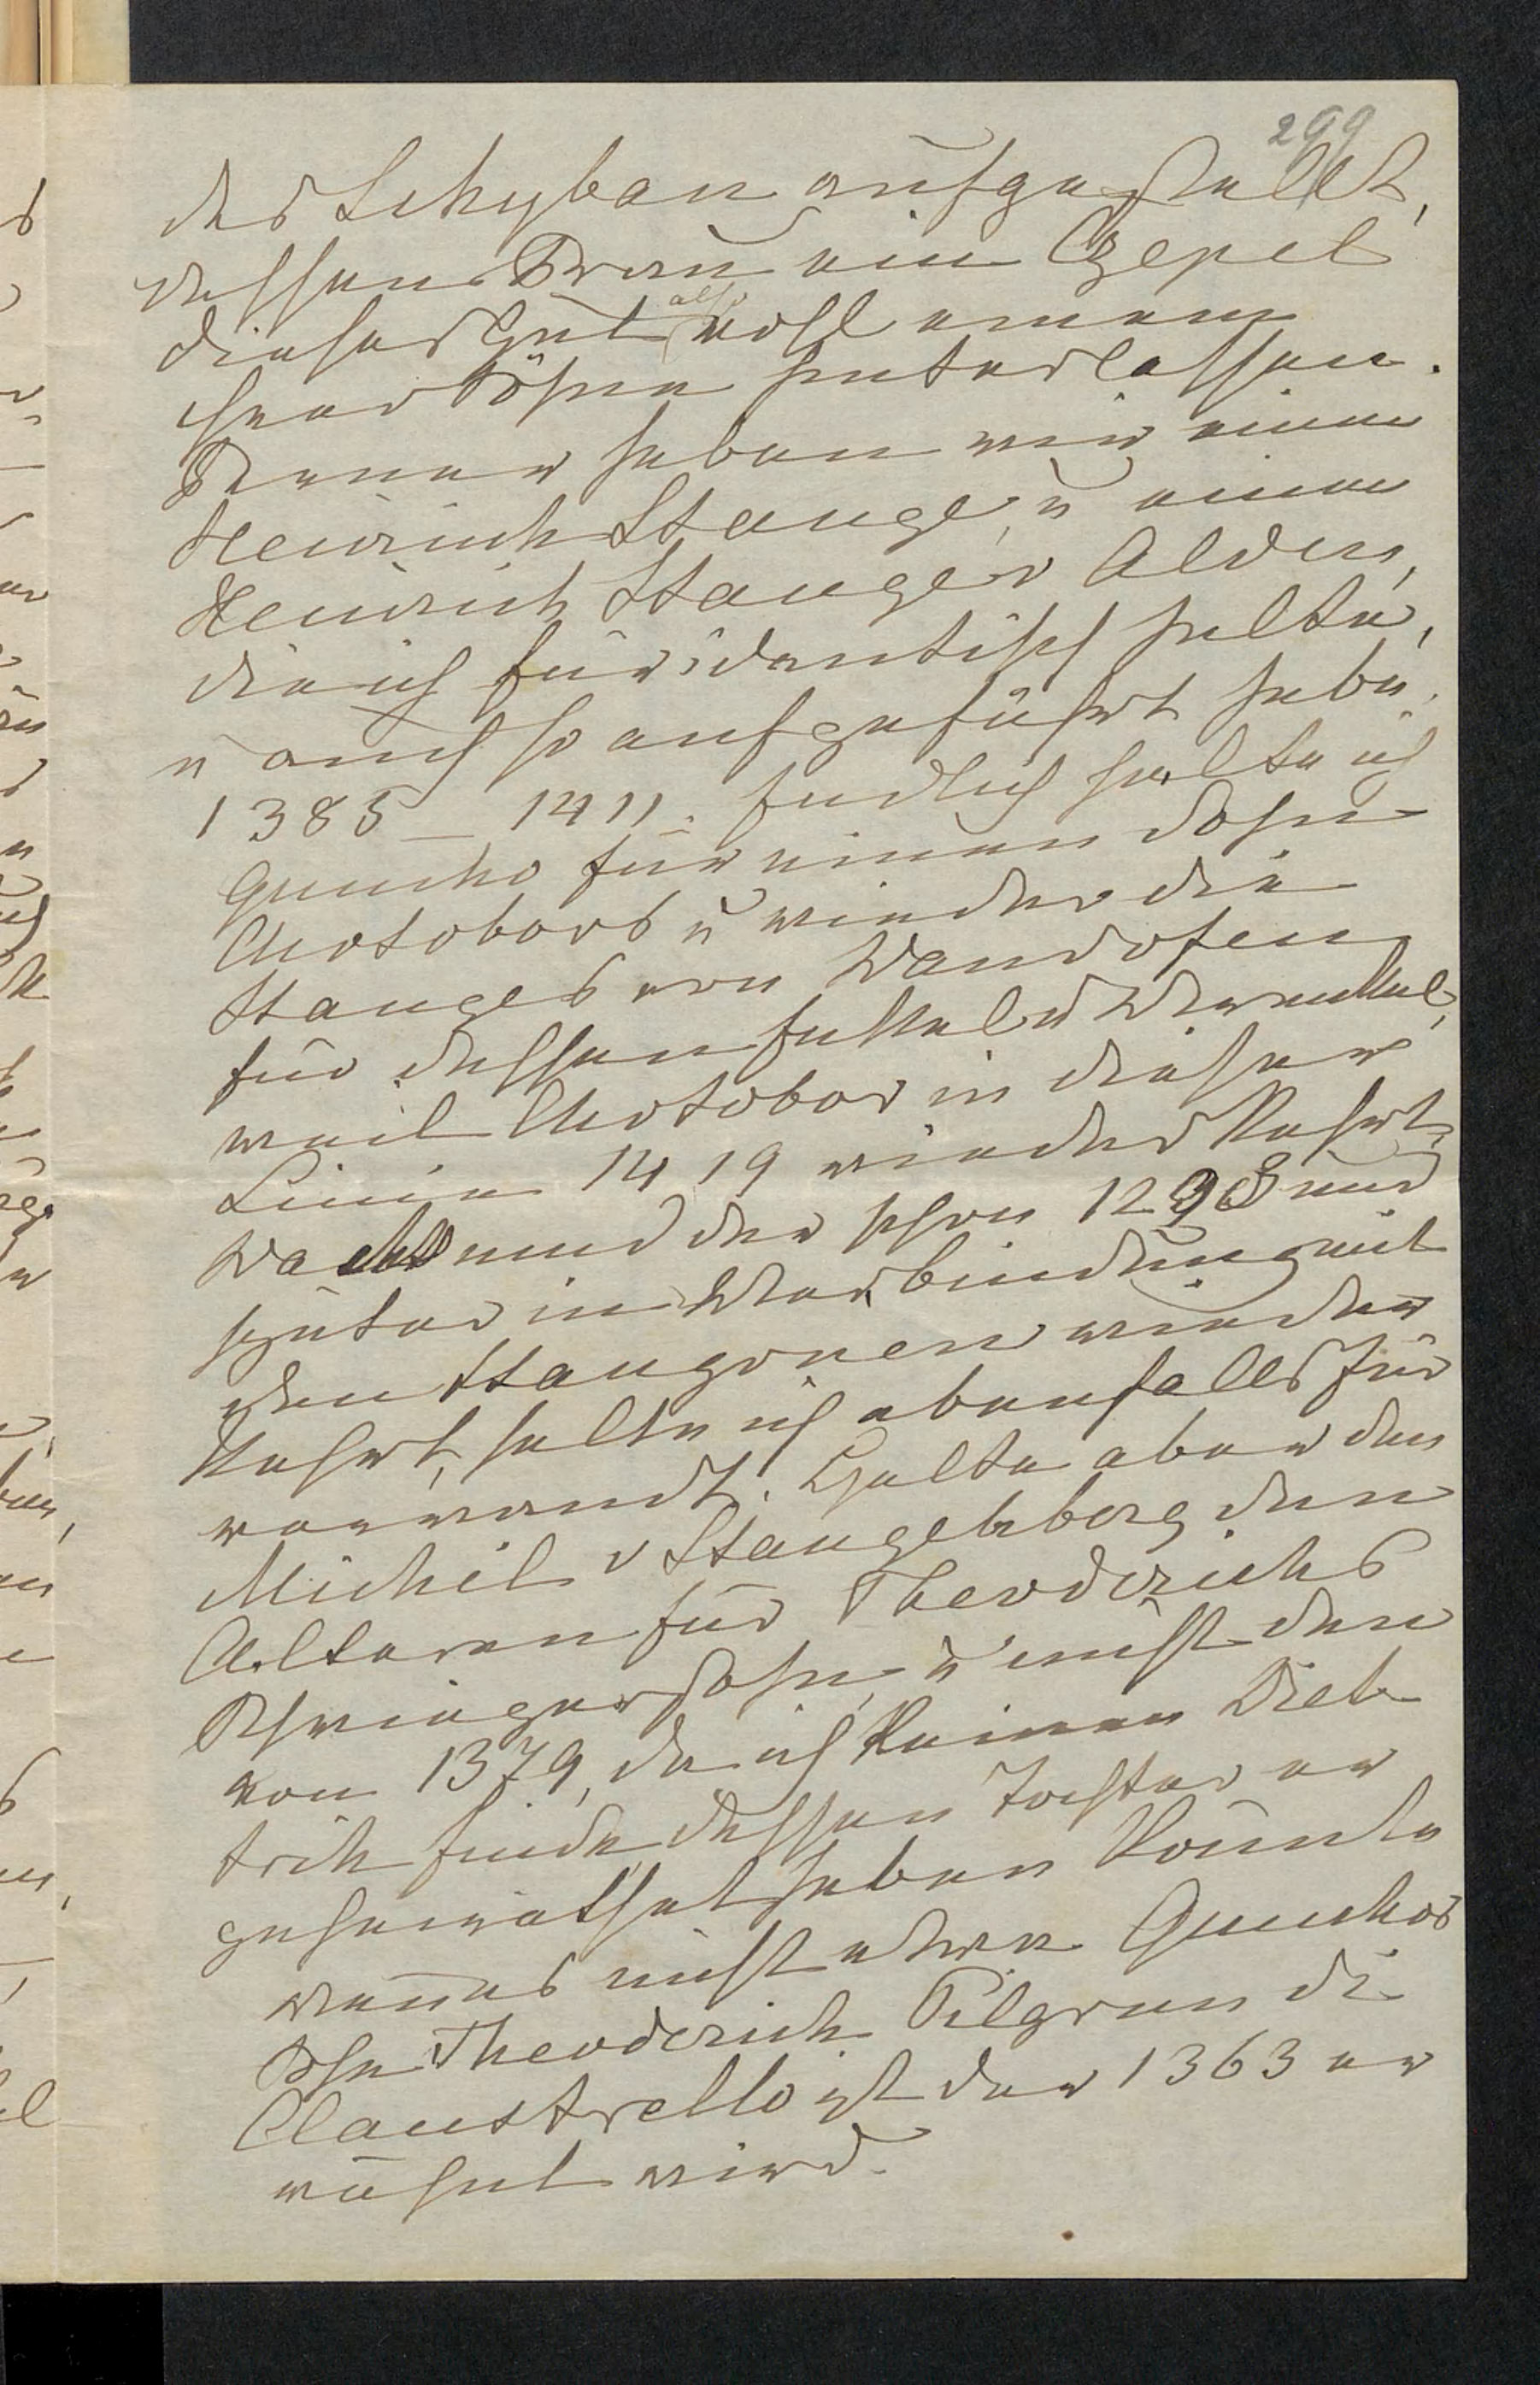 299
des Schyban aufgestellt,
dessen Frau ein Czepel
dieses Gut also wohl einem
ihrer Söhne hinterlassen.
Ferner haben wir einen
Heinrich Stange, u einen
Heinrich Stange v Alden,
die ich für identisch halte,
u auch so aufgeführt habe.
1385 – 1411. Endlich halte ich
Guncko für einen Sohn
Chotobors u wieder die
Stanges von Wandofen
für dessen Enkel u Urenkel,
weil Chotobor in dieser
Linie 1419 wiederkehrt,
Wachsmund der schon 1298 und
später in Verbindung mit
den Stangonen wieder
kehrt, halte ich ebenfalls für
verwandt. Halte aber den
Michel v Stangeberg den
Alteren für Theoderichs
Schwiegersohn, u nicht den
von 1379, da ich keinen Diet
rich finde dessen Tochter er
geheirathet haben könnte
wenn es nicht etwa Gunckos
Sohn Theoderich Pilgram di
Claustrello ist der 1363 er
wähnt wird.